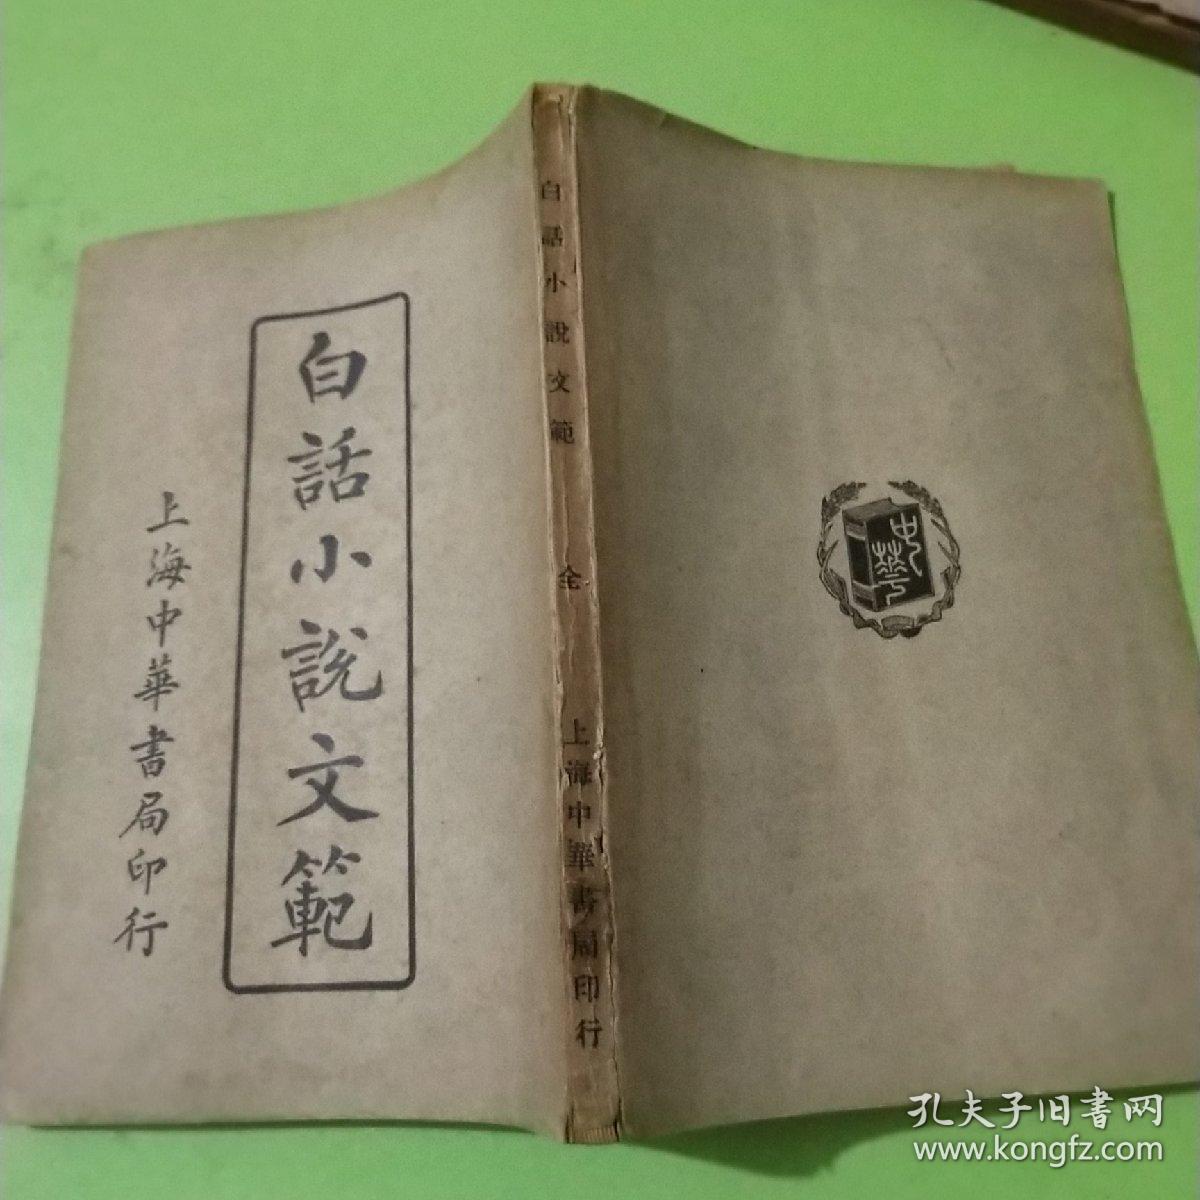 白話小説文範
上海中華書局印行
白話小說文範
全
上海中華書局印行
中華
孔夫子旧书网
www.kongfz.com